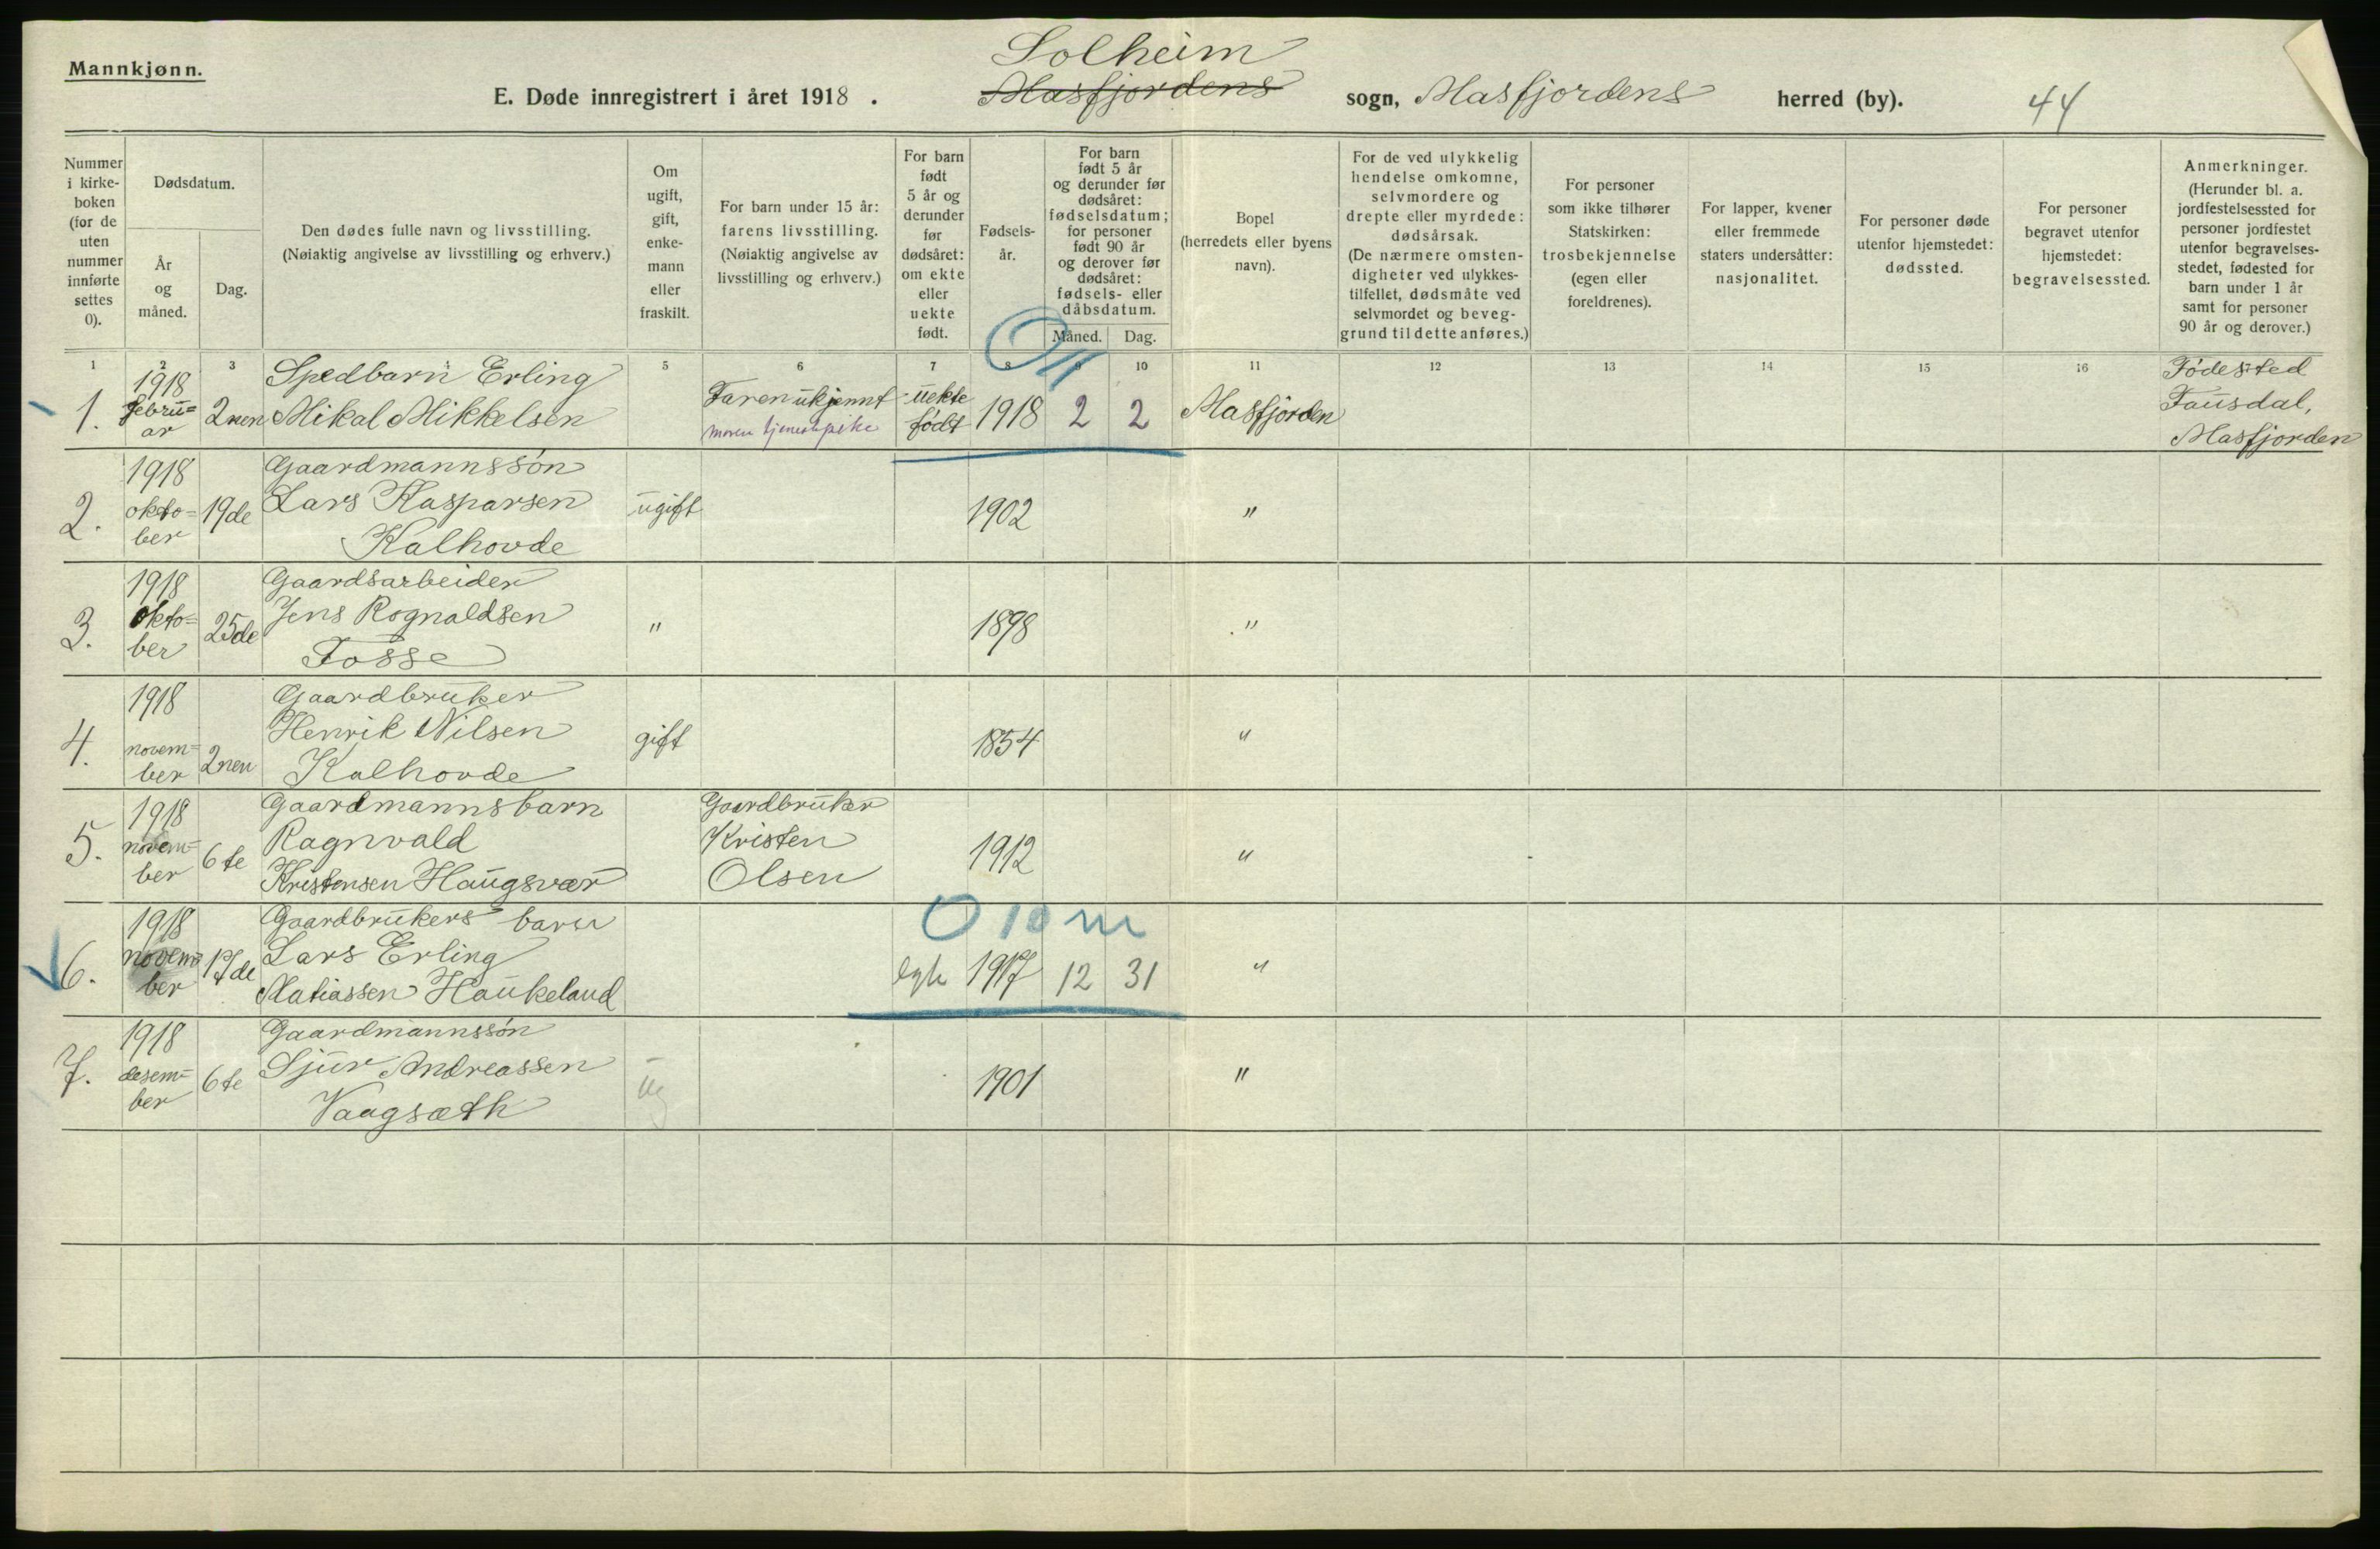 Mannkjønn.
E. Døde innregistrert i året 1918 .
Solheim
Masfjordens sogn, Masfjordens herred (by).
44
Nummer i kirke- boken (for de uten nummer innførte settes 0).
Dødsdatum.
År og måned.
Dag.
Den dødes fulle navn og livsstilling.
(Nøiaktig angivelse av livsstilling og erhverv.)
Om ugift, gift, enke- mann eller fraskilt.
For barn under 15 år: farens livsstilling. (Nøiaktig angivelse av livsstilling og erhverv.)
For barn født 5 år og derunder før dødsåret: om ekte eller uekte født.
Fødsels- år.
For barn født 5 år og derunder før dødsåret: fødselsdatum; for personer født 90 år og derover før dødsåret: fødsels- eller dåbsdatum.
Måned.
Dag.
Bopel (herredets eller byens navn).
For de ved ulykkelig hendelse omkomne, selvmordere og drepte eller myrdede: dødsårsak. (De nærmere omsten- digheter ved ulykkes- tilfellet, dødsmåte ved selvmordet og beveg- grund til dette anføres.)
For personer som ikke tilhører Statskirken: trosbekjennelse (egen eller foreldrenes).
For lapper, kvener eller fremmede staters undersåtter: nasjonalitet.
For personer døde utenfor hjemstedet: dødssted.
For personer begravet utenfor hjemstedet: begravelsessted.
Anmerkninger. (Herunder bl. a. jordfestelsessted for personer jordfestet utenfor begravelses- stedet, fødested for barn under 1 år samt for personer 90 år og derover.)
1 2 3 5 6 7 8 9 10 11 12 13 14 15 16
1. 1918 febru= ar 2nen Spedbarn Erling Mikal Mikkelsen Faren ukjennt moren tjenestepike uekte født 1918 2 2 Masfjorden Fødested Fausdal, Masfjorden
2. 1918 okto= ber 19de Gaardmannssøn Lars Kasparsen Kalhovde ugift 1902 "
3. 1918 okto= ber 25de Gaardsarbeider Jens Rognaldsen Fosse " 1898 "
4. 1918 novem= ber 2nen Gaardbruker Henrik Nilsen Kalhovde gift 1854 "
5. 1918 novem= ber 6te Gaardmannsbarn Ragnvald Kristensen Haugsvær Gaardbruker Kristen Olsen 1912 "
0 10 m
6. 1918 novem= ber 17de Gaardbrukers barn Lars Erling Matiassen Haukeland 1917 12 31 "
7. 1918 desem= ber 6te Gaardmannssøn Sjur Andreassen Vaagsæth ug 1901 "